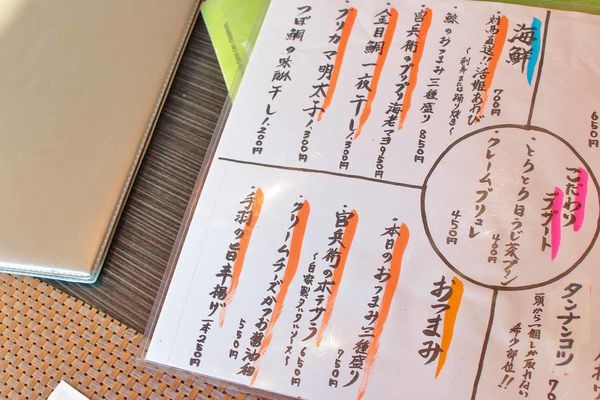 海鮮
・対馬直送!!活姫あわび
〜刺身または踊り焼き〜 700円
・鯨のおつまみ三種盛り 850円
・官兵衛のプリプリ海老マヨ950円
・金目鯛一夜干し1,300円
・ブリカマ明太子1,300円
つぼ鯛の味醂干し1,200円
650円
こだわり
デザート
・とりとり日うじ茶プリン 400円
・クレームブリュレ 450円
タンナンコツ
70
頭から一個しか取れない
希少部位!!
おつまみ
・本日のおつまみ三種盛り 750円
・官兵衛のポテサラ 650円
〜自家製タルタルソース〜
・クリームチーズかつお醤油和 550円
・手羽の旨辛揚げ 一本250円